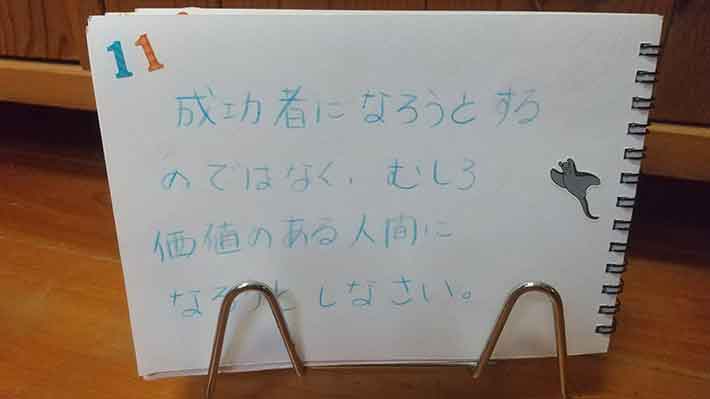 11
成功者になろうとする
のではなく、むしろ
価値のある人間に
なろうと しなさい。